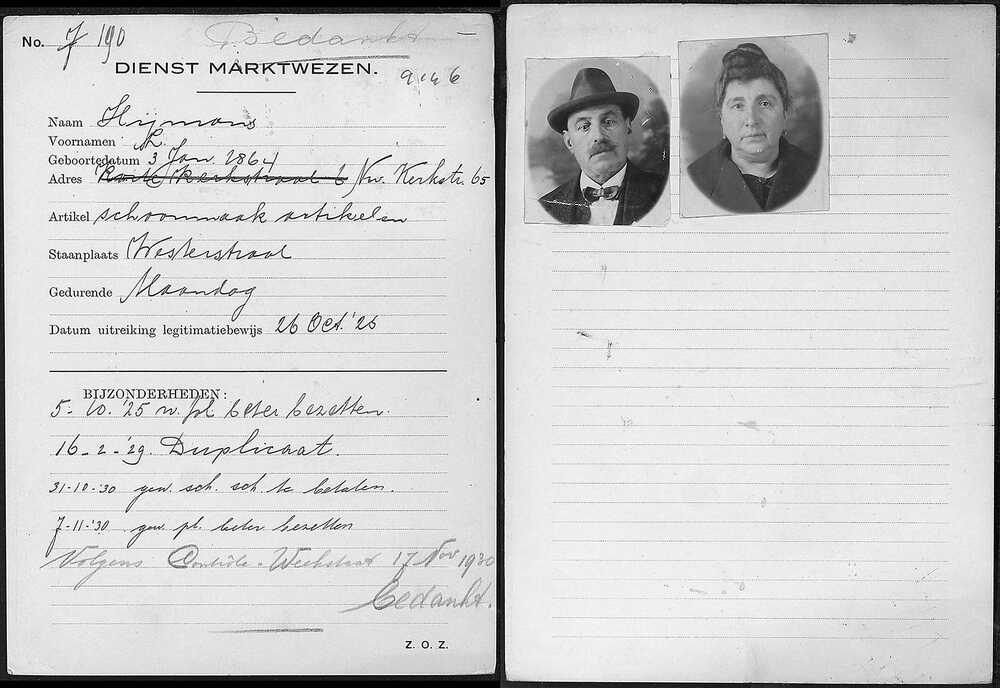 No. 7 190 Bedankt
DIENST MARKTWEZEN.
Naam Hijmans
Voornamen L.
Geboortedatum 3 Jan. 1864
Adres Korte Kerkstraat 6 Nw. Kerkstr. 65
Artikel schoonmaak artikelen
Staanplaats Westerstraat
Gedurende Maandag
Datum uitreiking legitimatiebewijs 26 Oct. '25
BIJZONDERHEDEN:
5-10.'25 w. pl beter bezetten.
16-2-'29. Duplicaat.
31-10-'30 gew. sch. sch. te betalen.
7-11-'30 gew. pl. beter bezetten
Volgens Contrôle-Weekstaat 17 Nov 1930
bedankt.
Z. O. Z.